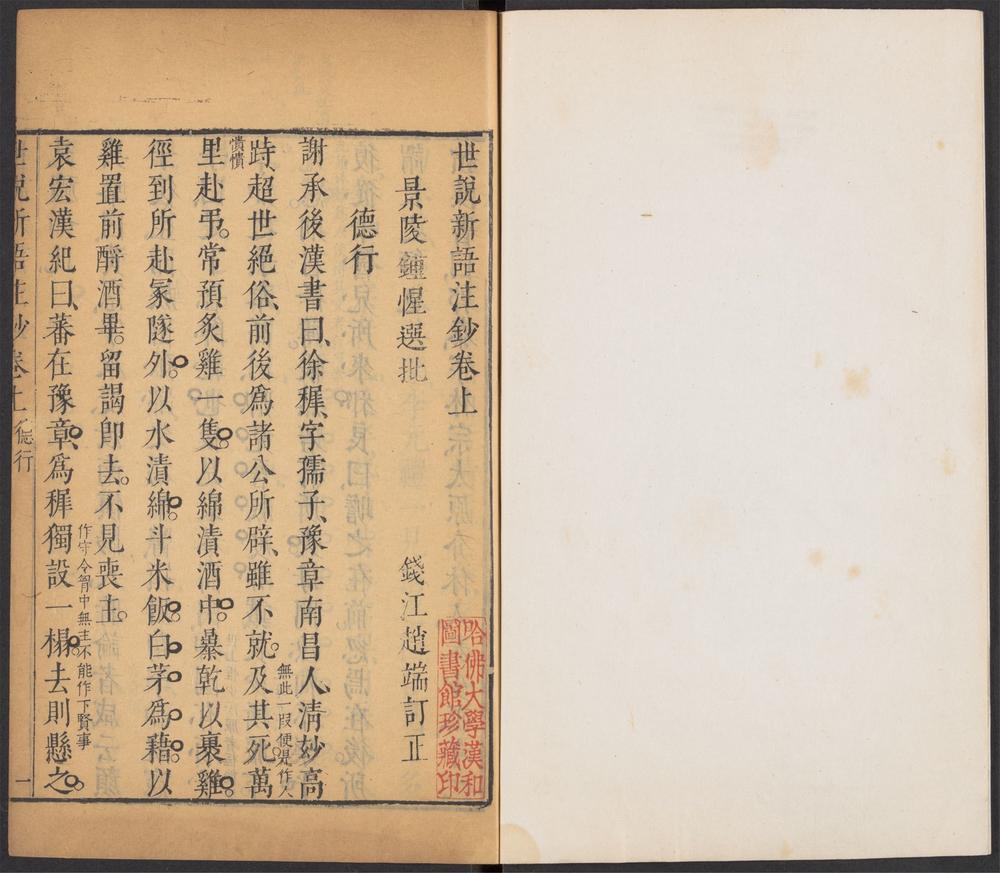 世說新語注鈔卷上
景陵鍾惺選批
錢江趙端訂正
哈佛大學漢和
圖書館珍藏印
德行
謝承後漢書曰徐穉字孺子豫章南昌人清妙高
無此一段便是作人
跱超世絕俗前後爲諸公所辟雖不就及其死萬
憒憒
里赴弔常預炙雞一隻以綿漬酒中暴乾以裹雞
徑到所赴冢隧外以水漬綿斗米飯白茅爲藉以
雞置前酹酒畢留謁卽去不見喪主
作守令胷中無主不能作下賢事
袁宏漢紀曰蕃在豫章爲穉獨設一榻去則懸之
世說新語注鈔卷上 德行 一